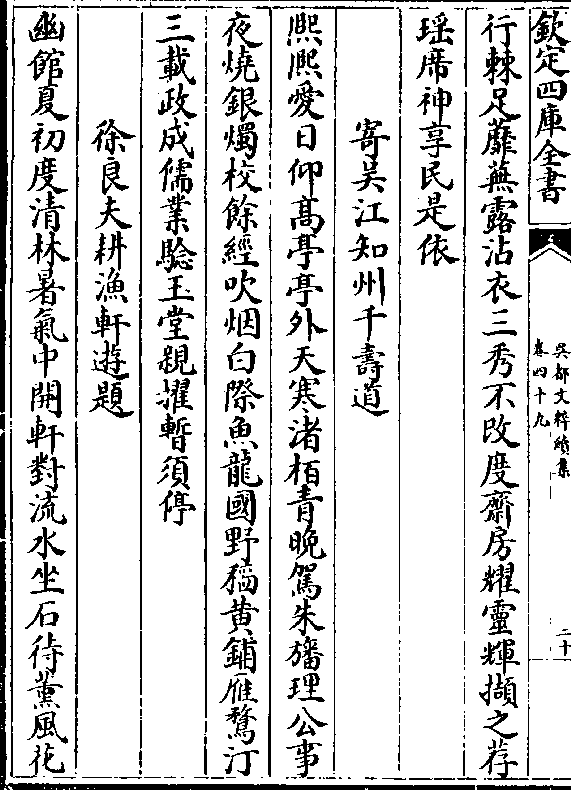 欽定四庫全書
吳都文粹續集
卷四十九
二十
行棘足蘼蕪露沾衣三秀不改度齋房耀靈輝擷之荐
瑶席神享民是依
寄吴江知州千壽道
熈熈愛日仰髙亭亭外天寒渚栢青晚駕朱旛理公事
夜燒銀燭校餘經吹烟白際魚龍國野穭黄鋪雁鶩汀
三載政成儒業騐玉堂親擢暫須停
徐良夫耕漁軒遊題
幽館夏初度清林暑氣中開軒對流水坐石待薰風花